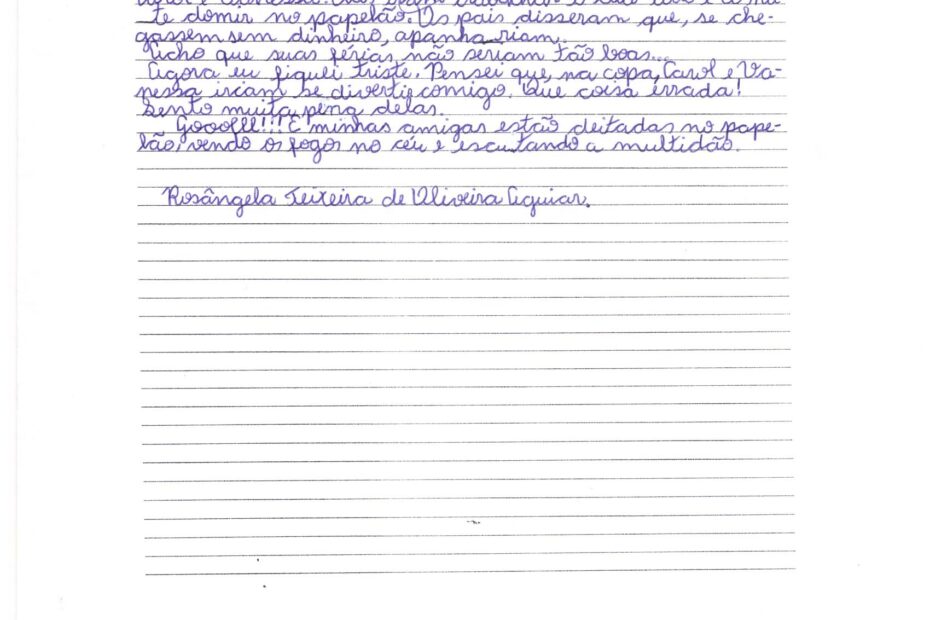 te domir no papelão. Os pais disseram que, se che-
gassem sem dinheiro, apanhariam.
Acho que suas férias não seriam tão boas...
Agora eu fiquei triste. Pensei que, na copa, Carol e Va-
nessa iriam se divertir comigo. Que coisa errada!
Sento muita pena delas.
Gooolll!!! E minhas amigas estão deitadas no pape-
lão, vendo os fogos no céu e escutando a multidão.
Rosângela Teixeira de Oliveira Aguiar.